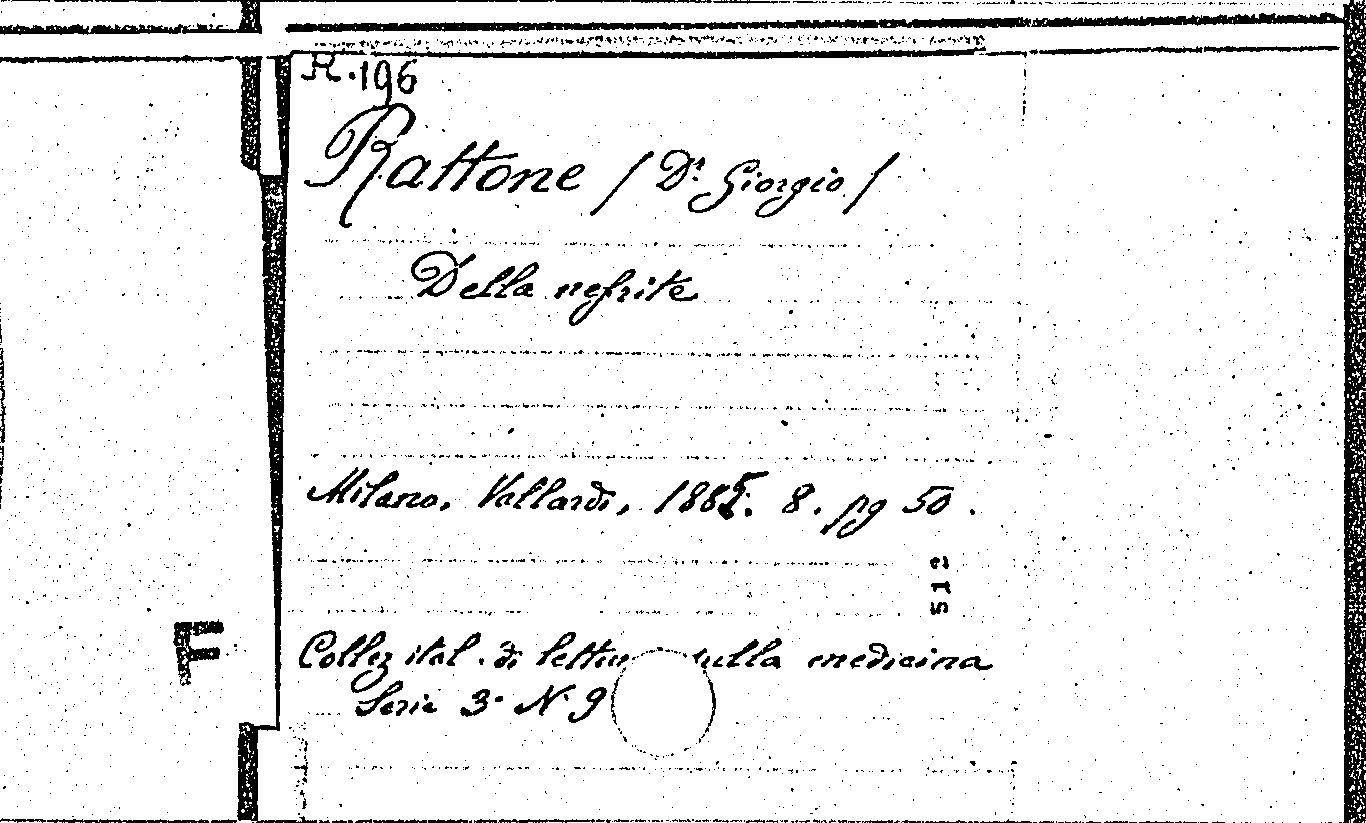 R.196
Rattone / Dr. Giorgio /
Della nefrite
Milano. Vallardi, 1885. 8. pg 50.
S 1 2
F
Collez ital. di lettu sulla medicina
Serie 3ª N. 9